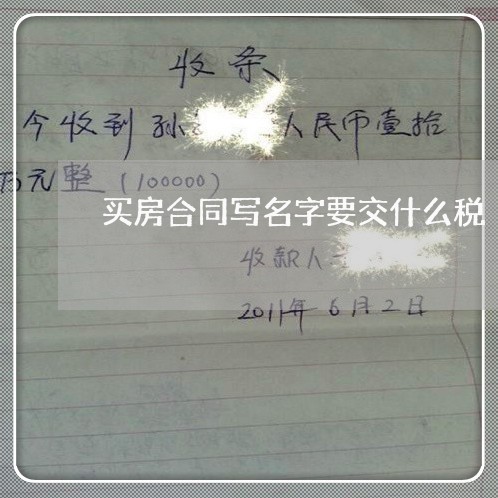 收条
今收到孙 人民币壹拾
万元整（100000）
买房合同写名字要交什么税
收款人
2011年6月2日